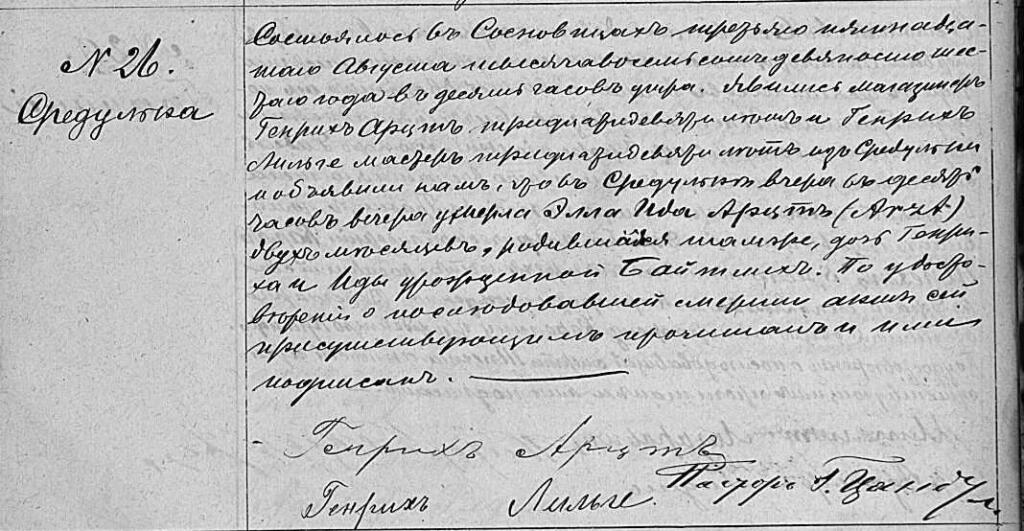 N 26.
Средулька
Состоялось въ Сосновицахъ третьяго пятнадца-
таго Августа тысяча восемьсотъ девяносто шес-
таго года въ десять часовъ утра. Явились магазинеръ
Генрихъ Арцтъ тридцати девяти лѣтъ и Генрихъ
Лильге мастеръ тридцати девяти лѣтъ изъ Средульки
и объявили намъ, что въ Средулькѣ вчера въ десять
часовъ вечера умерла Элла Ида Арцтъ (Arzt)
двухъ мѣсяцевъ, родившаяся тамже, дочь Генри-
ха и Иды урожденной. По удосто-
вѣреніи о послѣдовавшей смерти актъ сей
присутствующимъ прочитанъ и ими
подписанъ.
Генрихъ Арцтъ
Генрихъ Лильге. Пасторъ Г.